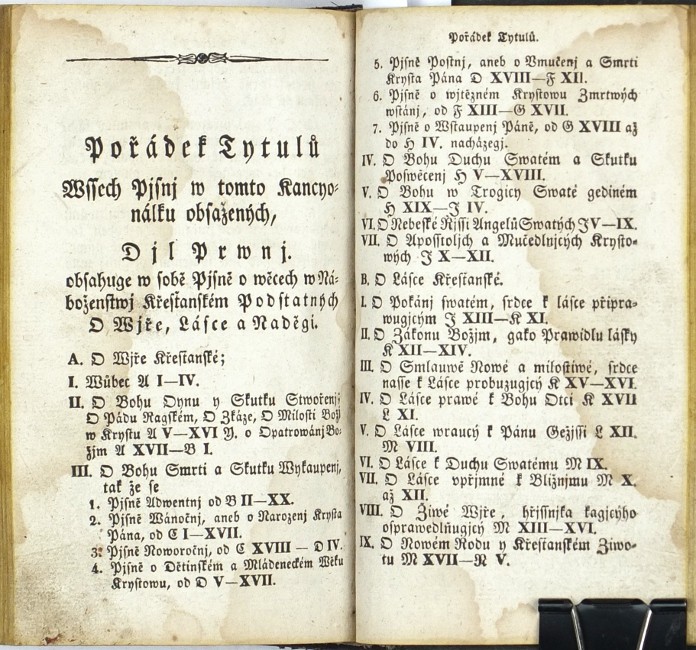 Pořádek Tytulů
Wssech Pjsnj w tomto Kancyo-
nálku obsažených,
Djl Prwnj.
obsahuge w sobě Pjsně o wěcech w Ná-
boženstwj Křesťanském Podstatných
O Wjře, Lásce a Naděgi.
A. O Wjře Křesťanské;
I. Wůbec A I—IV.
II. O Bohu Otcy y Skutku Stwořenj,
O Pádu Ragském, O Zkáze, O Milosti Božj
w Krystu A V—XVI. o Opatrowánj Bo-
žjm A XVII—B I.
III. O Bohu Smrti a Skutku Wykaupenj,
tak že se
1. Pjsně Adwentnj od B II—XX.
2. Pjsně Wánočnj, aneb o Narozenj Krysta
Pána, od C I—XVII.
3. Pjsně Noworočnj, od C XVIII — D IV.
4. Pjsně o Dětinském a Mládeneckém Wěku
Krystowu, od D V—XVII.
Pořádek Tytulů.
5. Pjsně Postnj, aneb o Vmučenj a Smrti
Krysta Pána D XVIII—F XII.
6. Pjsně o wjtězném Krystowu Zmrtwých
wstánj, od F XIII—G XVII.
7. Pjsně o Wstaupenj Páně, od G XVIII až
do H IV. nacházegj.
IV. O Bohu Duchu Swatém a Skutku
Poswěcenj H V—XVIII.
V. O Bohu w Trogicy Swaté gediném
H XIX—J IV.
VI. O Nebeské Řjssi Angelů Swatých J V—IX.
VII. O Aposstoljch a Mučedlnjcých Krysto-
wých J X—XII.
B. O Lásce Křesťanské.
I. O Pokánj swatém, srdce k lásce připra-
wugjcým J XIII—K XI.
II. O Zákonu Božjm, gako Prawidlu lásky
K XII—XIV.
III. O Smlauwě Nowé a milostiwé, srdce
nasse k Lásce probuzugjcý K XV—XVI.
IV. O Lásce prawé k Bohu Otci K XVII
L XI.
V. O Lásce wraucý k Pánu Gežjssi L XII.
M VIII.
VI. O Lásce k Duchu Swatému M IX.
VII. O Lásce vpřjmné k Bližnjmu M X.
až XII.
VIII. O Žiwé Wjře, hřjssnjka kagjcýho
osprawedlňugjcý M XIII—XVI.
IX. O Nowém Rodu y Křesťanském Žiwo-
tu M XVII—N V.